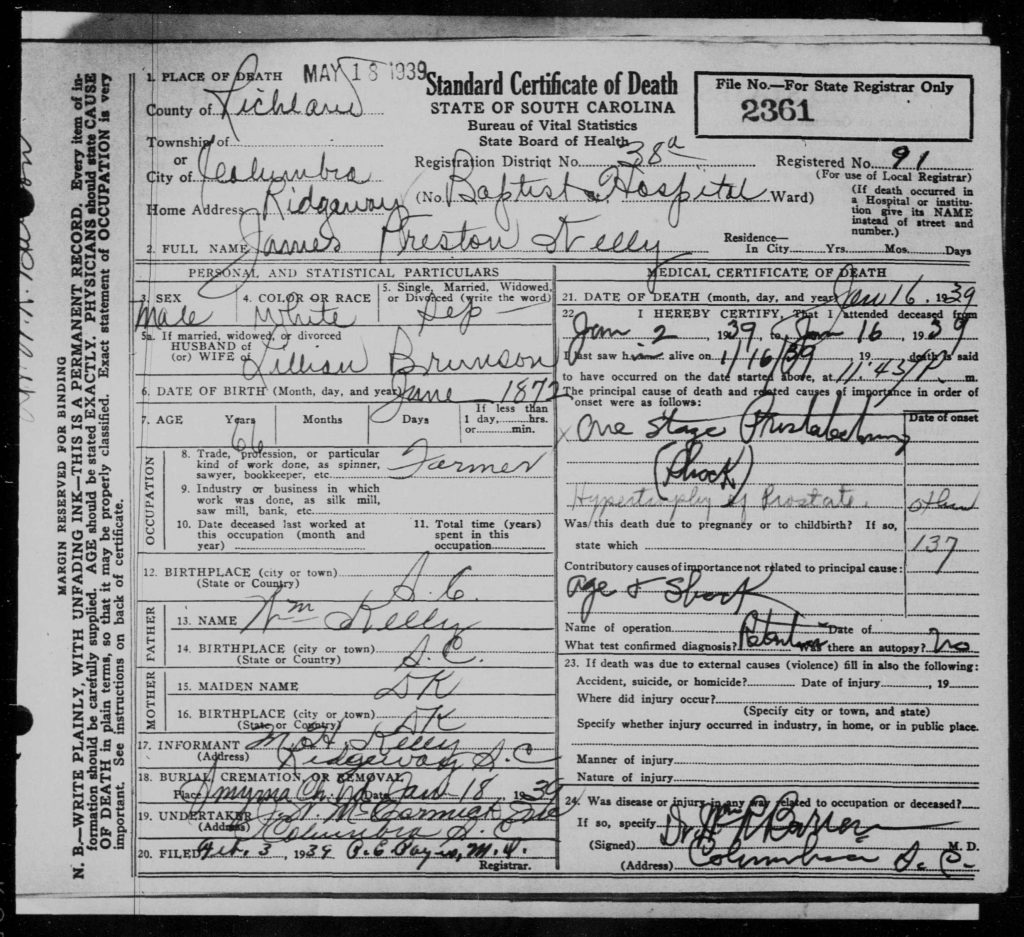 MARGIN RESERVED FOR BINDING
N. B.—WRITE PLAINLY, WITH UNFADING INK—THIS IS A PERMANENT RECORD. Every item of in-
formation should be carefully supplied. AGE should be stated EXACTLY. PHYSICIANS should state CAUSE
OF DEATH in plain terms, so that it may be properly classified. Exact statement of OCCUPATION is very
important. See instructions on back of certificate.
MAY 18 1939
Standard Certificate of Death
STATE OF SOUTH CAROLINA
Bureau of Vital Statistics
State Board of Health
File No.—For State Registrar Only
2361
1. PLACE OF DEATH
County of Richland
Township of
or
City of Columbia
Home Address Ridgeway
Registration District No. 38a
Registered No. 91
(For use of Local Registrar)
(No. Baptist Hospital Ward)
(If death occurred in
a Hospital or institu-
tion give its NAME
instead of street and
number.)
2. FULL NAME James Preston Kelly
Residence—
In City Yrs. Mos. Days
PERSONAL AND STATISTICAL PARTICULARS
3. SEX
Male
4. COLOR OR RACE
White
5. Single, Married, Widowed,
or Divorced (write the word)
Sep
5a. If married, widowed, or divorced
HUSBAND of
(or) WIFE of Lillian Brunson
6. DATE OF BIRTH (Month, day, and year) June 1872
7. AGE Years Months Days
66
If less than
1 day, hrs.
or min.
OCCUPATION
8. Trade, profession, or particular
kind of work done, as spinner,
sawyer, bookkeeper, etc. Farmer
9. Industry or business in which
work was done, as silk mill,
saw mill, bank, etc.
10. Date deceased last worked at
this occupation (month and
year)
11. Total time (years)
spent in this
occupation
12. BIRTHPLACE (city or town)
(State or Country) S.C.
FATHER
13. NAME Wm Kelly
14. BIRTHPLACE (city or town)
(State or Country) S.C.
MOTHER
15. MAIDEN NAME DK
16. BIRTHPLACE (city or town)
(State or Country) DK
17. INFORMANT Kelly
(Address) Ridgeway S.C
18. BURIAL, CREMATION, OR REMOVAL
Place Smyrna Ch. Date Jan 18, 1939
19. UNDERTAKER McCormick
(Address) Columbia S.C
20. FILED Feb. 3, 1939 M.D.
Registrar.
MEDICAL CERTIFICATE OF DEATH
21. DATE OF DEATH (month, day, and year) Jan 16, 1939
22 I HEREBY CERTIFY, That I attended deceased from
Jan 2, 1939, to Jan 16, 1939
I last saw him alive on 1/16/39 19 death is said
to have occurred on the date started above, at 11:43 P. m.
The principal cause of death and related causes of importance in order of
onset were as follows:
Date of onset
One Stage Prostatectomy
(Shock)
Hypertrophy of Prostate.
Was this death due to pregnancy or to childbirth? If so,
state which
137
Contributory causes of importance not related to principal cause:
Age & Shock
Name of operation Date of
What test confirmed diagnosis? Was there an autopsy? No
23. If death was due to external causes (violence) fill in also the following:
Accident, suicide, or homicide? Date of injury , 19
Where did injury occur?
(Specify city or town, and state)
Specify whether injury occurred in industry, in home, or in public place.
Manner of injury
Nature of injury
24. Was disease or injury in any way related to occupation or deceased?
If so, specify
(Signed) Dr. M. D.
(Address) Columbia S. C.